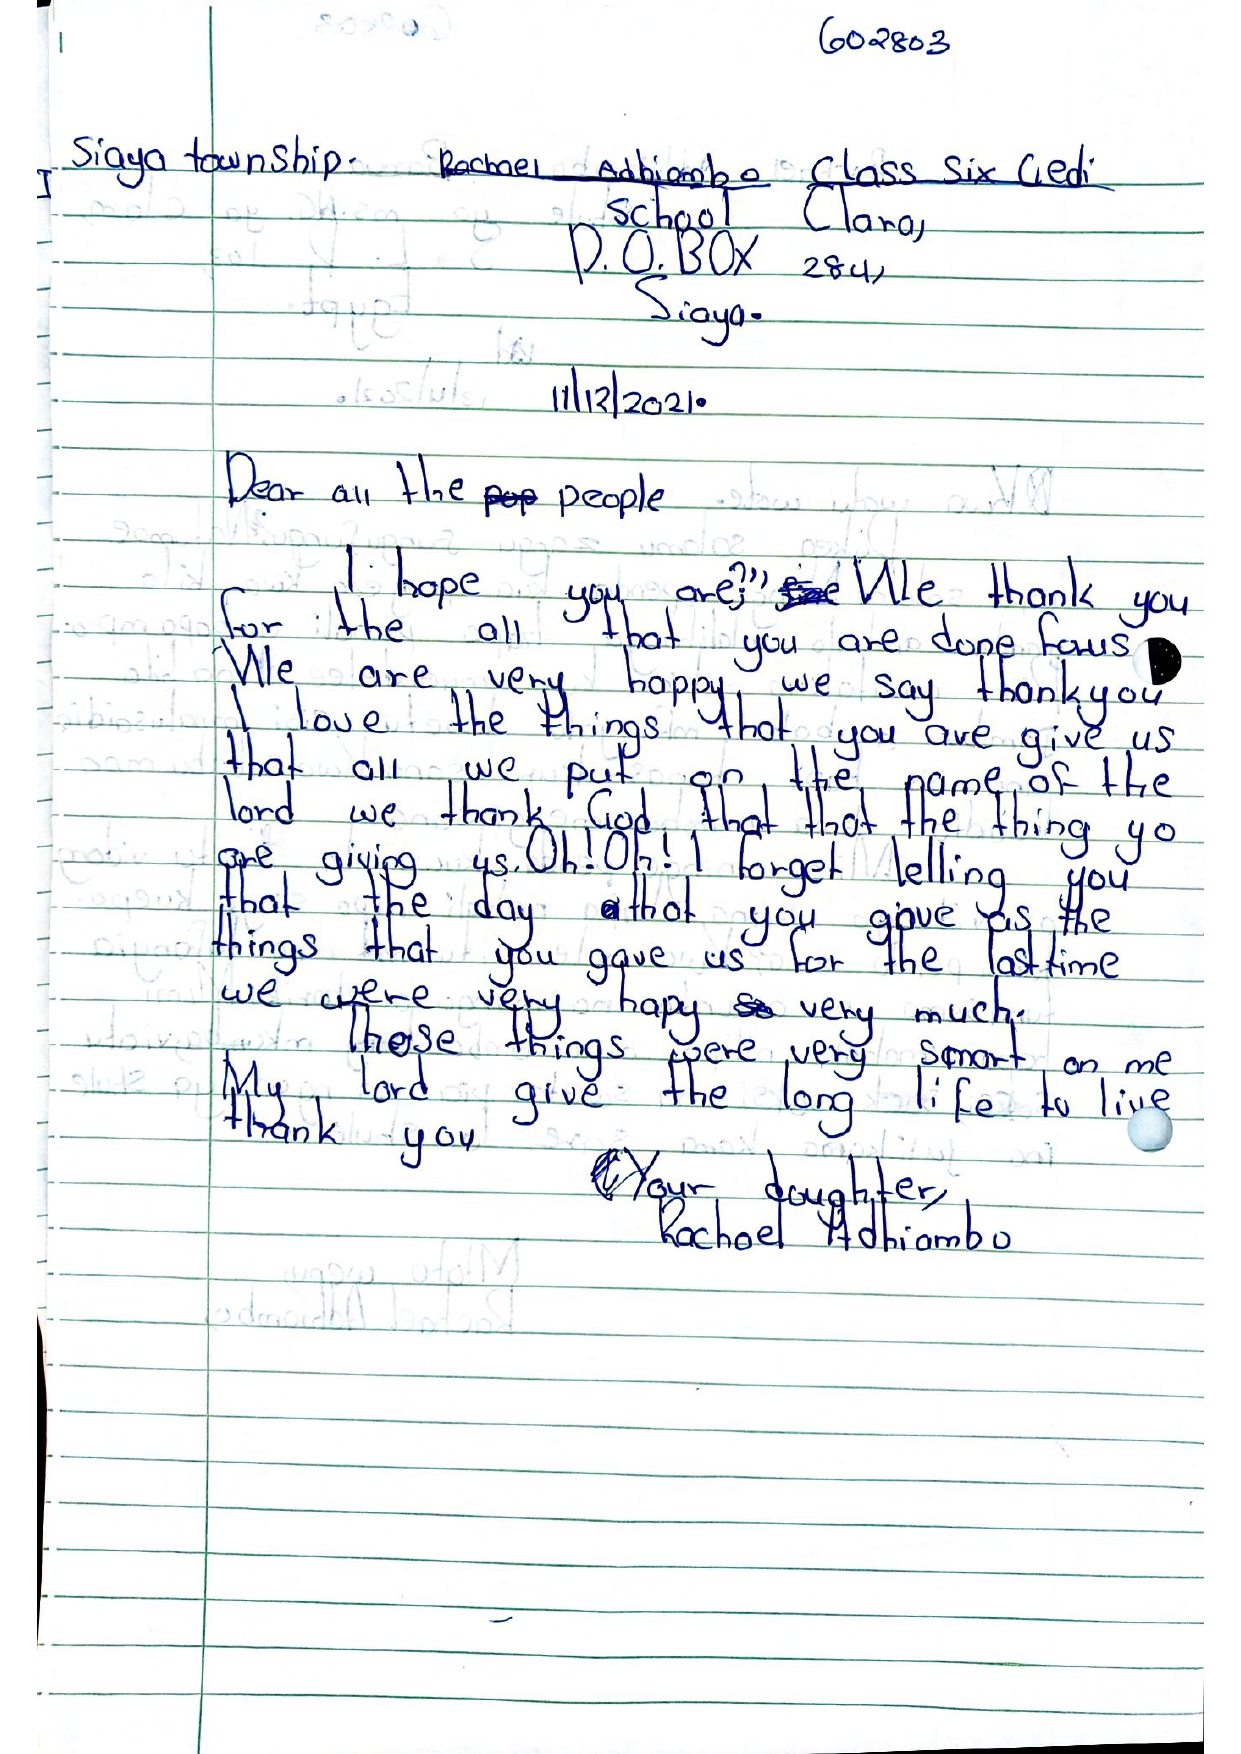 602803
Siaya township. Rachael Adhiambo Class Six Gedi
School Clara,
P.O.BOX 284,
Siaya.
11/12/2021.
Dear all the pop people
I hope you are; We thank you
for the all that you are done forus
We are very happy, we say thankyou
I love the things that you are give us
that all we put on the name of the
lord we thank God that that the thing yo
are giving us. Oh! Oh! I forget telling you
that the day that you gave us the
things that you gave us for the lasttime
we were very hapy so very much.
These things were very smart on me
My lord give the long life to live
thank you
Your daughter,
Rachael Adhiambo